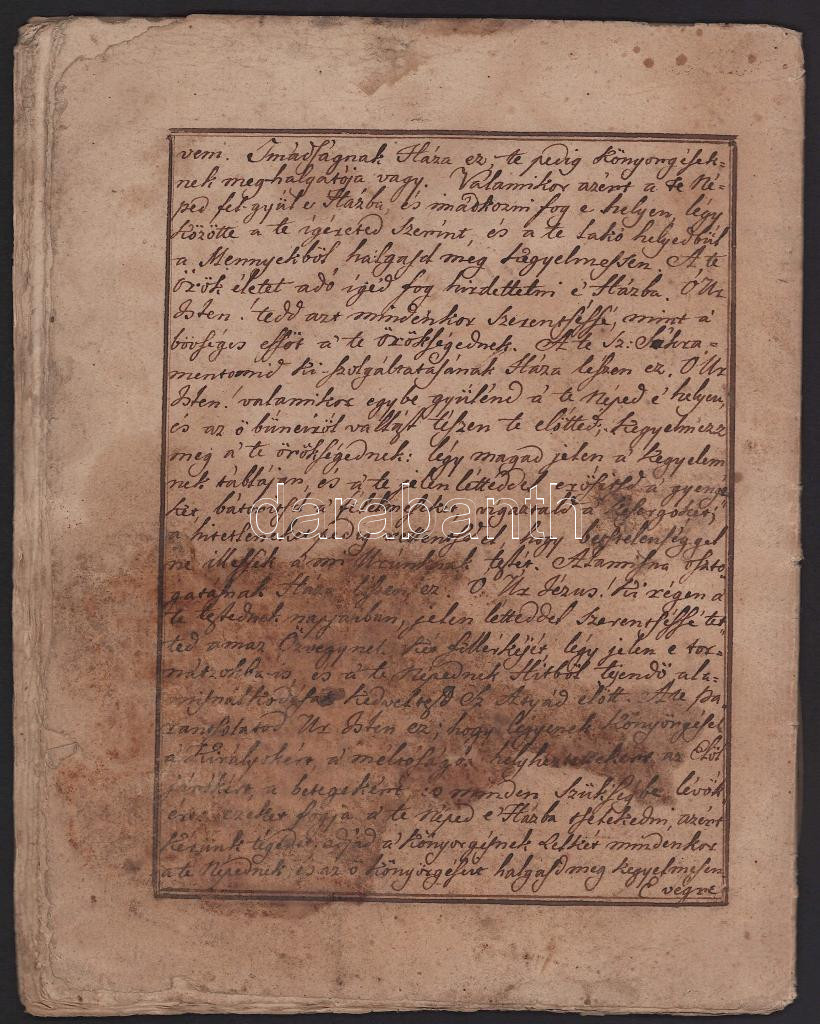 veni. Imádságnak Háza ez, te pedig Könyörgések=
nek meghalgatója vagy. Valamikor azért a te Né=
ped fel-gyűl e Házba, és imádkozni fog e helyen, légy
közötte a te igéreted szerint, és a te lakó helyedbűl
a Mennyekből halgasd meg figyelmessen. A te
örök életet adó igéd fog hirdettetni é Házba. Ó Ur
Isten! tedd azt mindenkor szerentséssé, mint á
bővséges essőt á te örökségednek. A te Sz: Sákra=
mentomid ki-szolgáltatásának Háza lészen ez. Ó Ur
Isten! valamikor egybe gyülénd á te Néped é helyen,
és az ő bűneiről vallást tészen te előtted; kegyelmezz
meg á te örökségednek: légy magad jelen á kegyelem
nek tábláján, és á te jelen létteddel erősítsd á gyengé
ket, bátorítsd á félelmeseket, vigasztald á kesergőket;
a hitetleneket pedig ne engedd hogy betstelenséggel
ne illessék á mi Urunknak testét. Alamisna oszto
gatásnak Háza lészen ez. Ó Ur Jézus! ki régen á
te testednek napjaiban, jelen létteddel szerentséssé tet
ted amaz Özvegynek két fillérkéjét, légy jelen e tor=
nátzokba is, és á te Népednek Hitből tejendő ala=
misnálkodását kedveltesd Sz Atyád előtt. A te pa
rantsolatod Ur Isten ez; hogy légyenek Könyörgések
á Királyokért, á méltóságos helyheztettekért, az Elöl
járókért, a betegekért és minden szükségbe lévők
ért: ezeket fogja á te Néped e Házba tselekedni, azért
kérünk tégedet, adjad á könyörgésnek Lelkét mindenkor
a te Népednek, és az ő könyörgésért halgasd meg kegyelmesen
E végre
darabanth